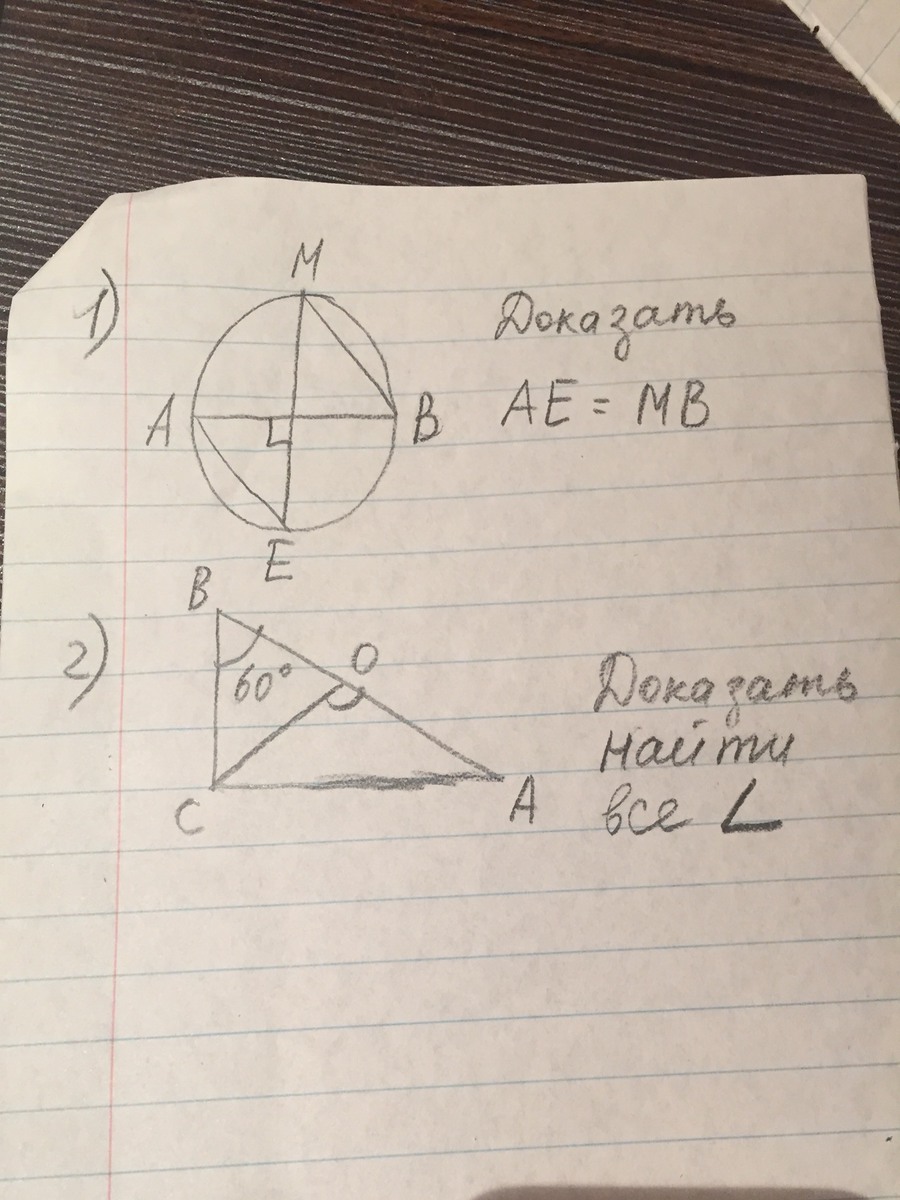 1)
M
A
B
E
Доказать
AE = MB
2)
B
60°
O
C
A
Доказать
найти
все ∠